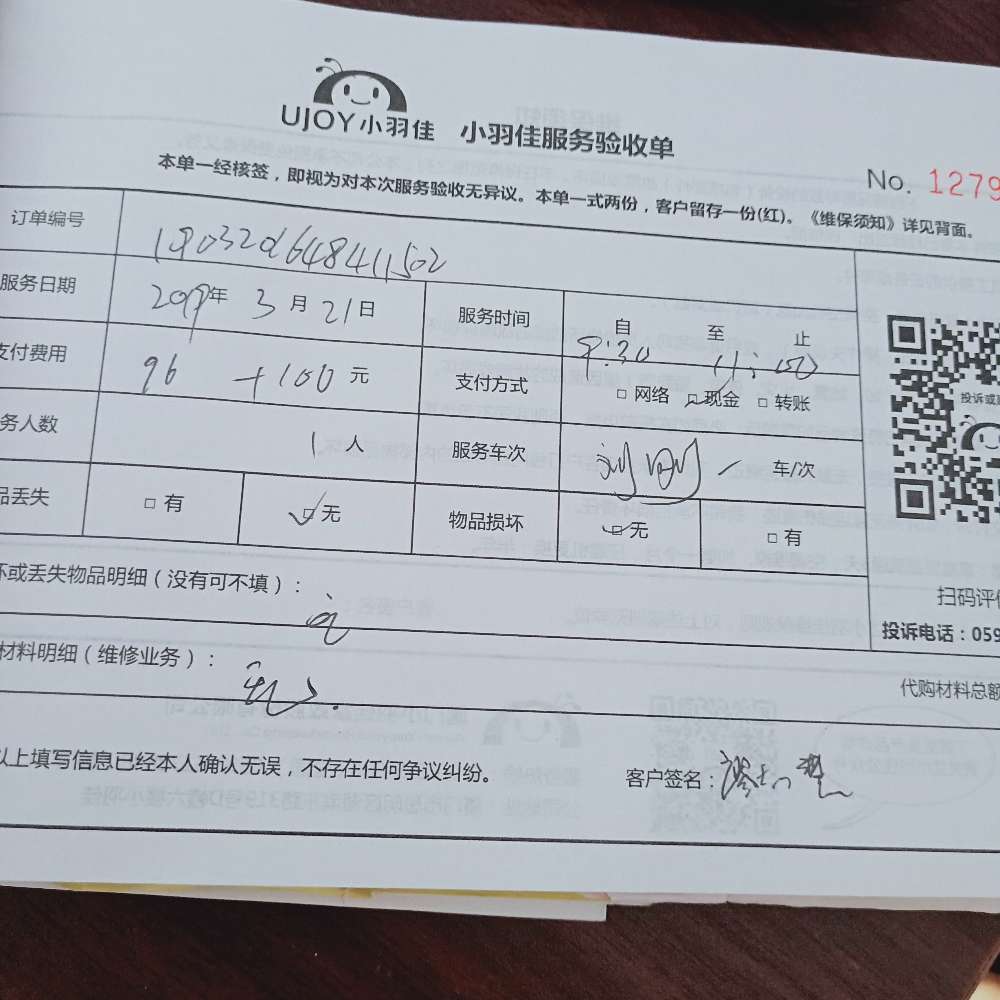 UJOY小羽佳 小羽佳服务验收单
No. 1279
本单一经核签，即视为对本次服务验收无异议。本单一式两份，客户留存一份(红)。《维保须知》详见背面。
订单编号
服务日期 2019年 3月 21日 服务时间 自 8:30 至 11:00 止
支付费用 96 +100 元 支付方式 □网络 □现金 □转账
务人数 1人 服务车次 刘刚 一 车/次
品丢失 □有 □无 物品损坏 □无 □有
坏或丢失物品明细（没有可不填）： 无
材料明细（维修业务）： 无
代购材料总额
投诉或
扫码评价
投诉电话：059
以上填写信息已经本人确认无误，不存在任何争议纠纷。 客户签名：